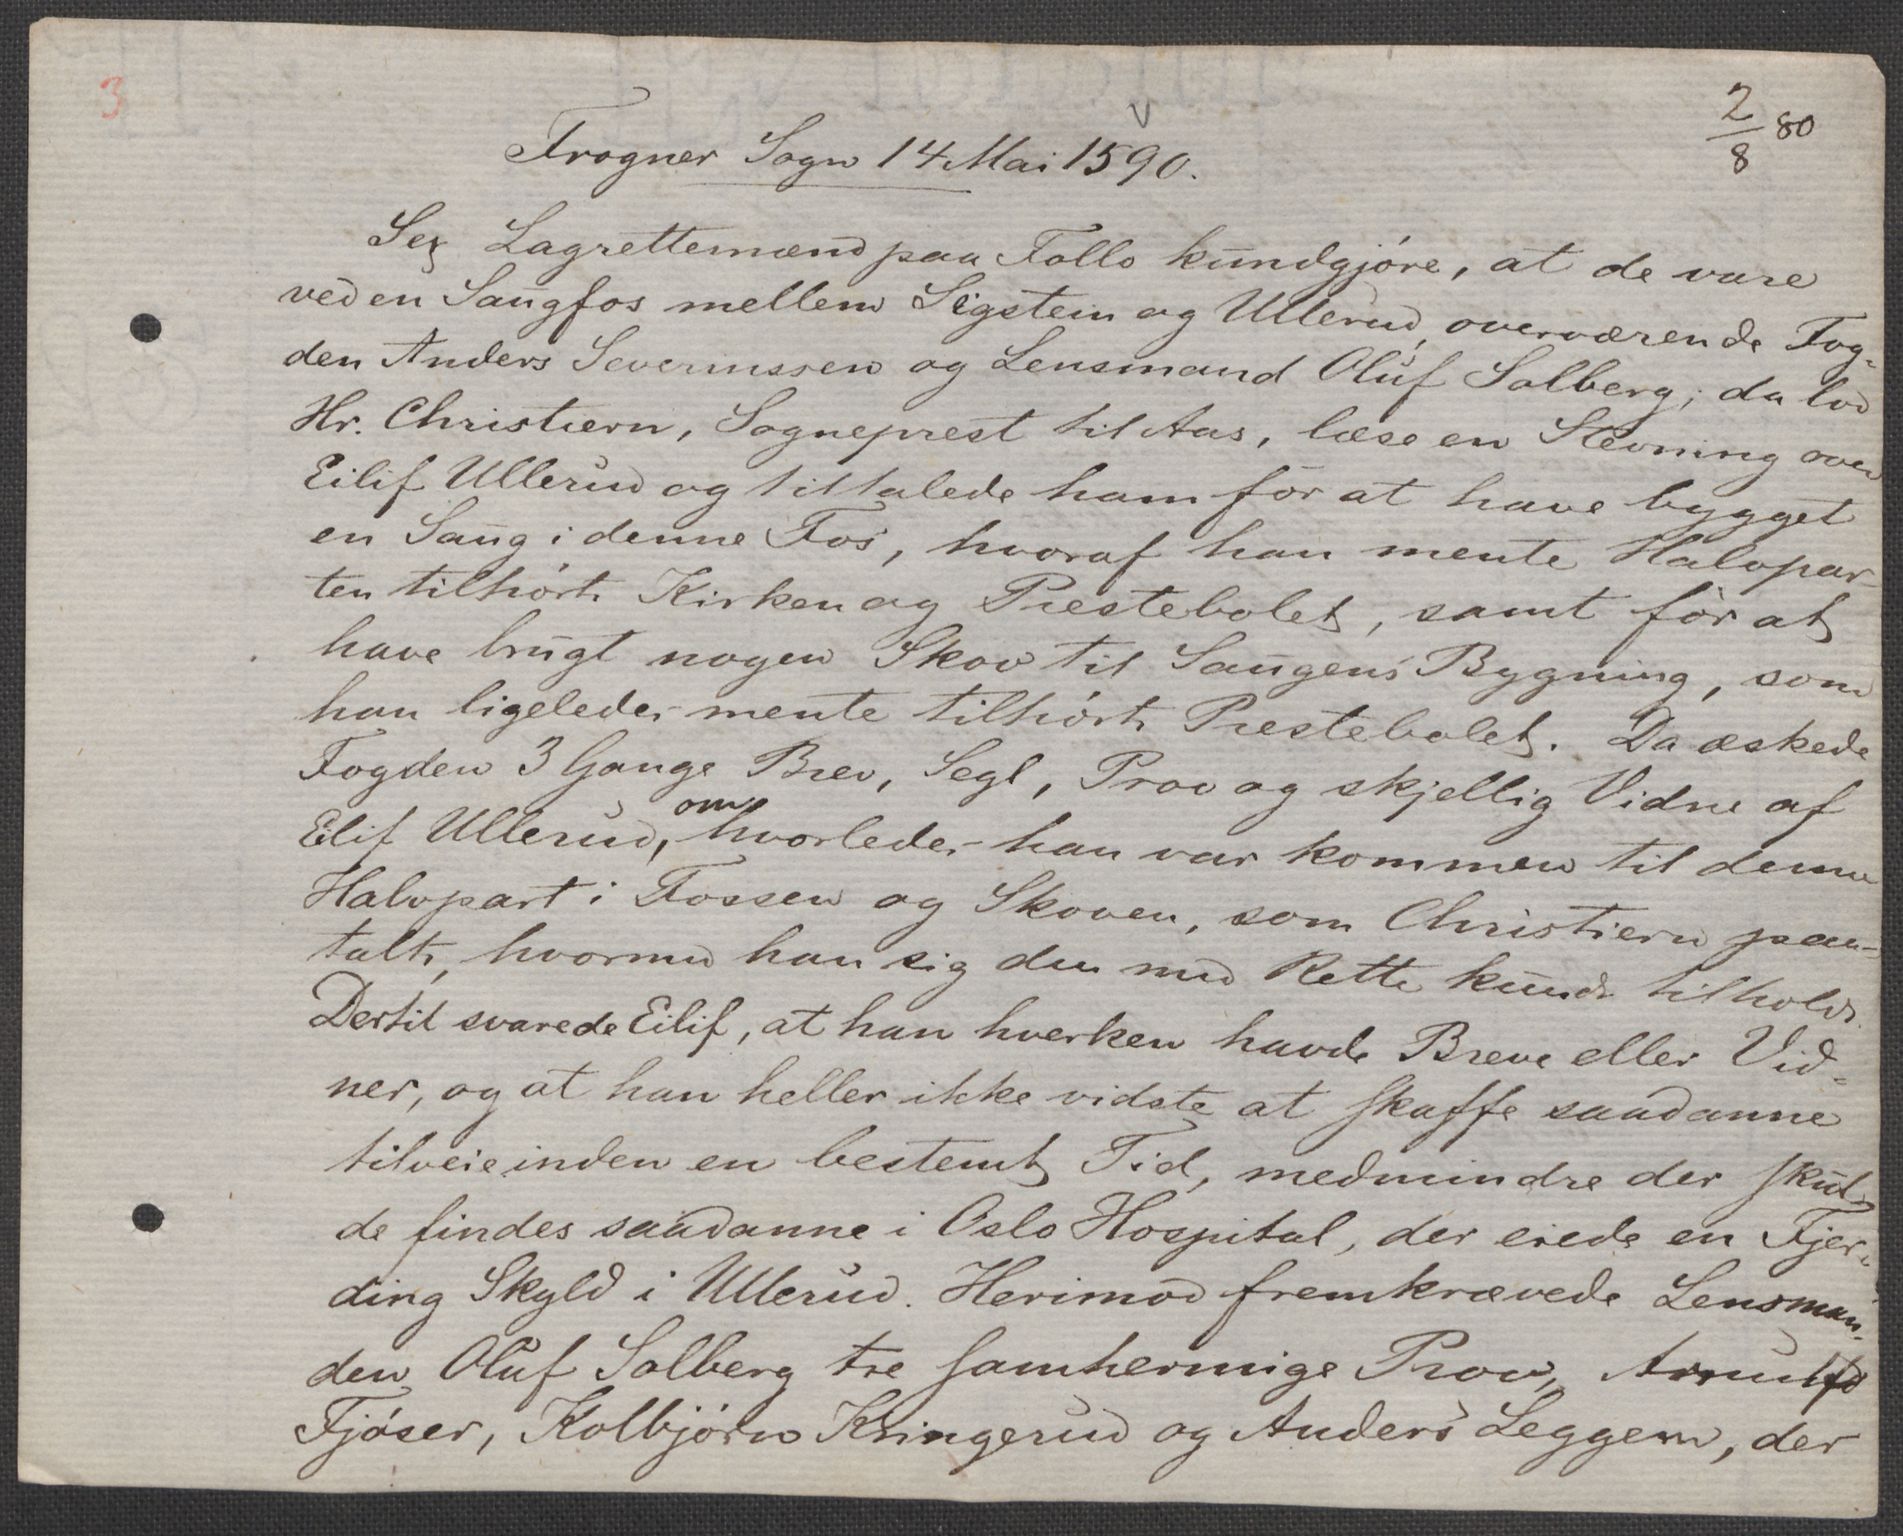 3
2/8 80
Frogner Sogn 14 Mai 1590.
Sex Lagrettemænd paa Follo kundgjøre, at de vare
ved en Saugfos mellem Sigstein og Ullerud, overværende Fog-
den Anders Severinssen og Lensmand Oluf Solberg; da lod
Hr. Christiern, Sogneprest til Aas, læse en Stevning over
Eilif Ullerud og tiltalede ham for at have bygget
en Saug i denne Fos, hvoraf han mente Halvpar-
ten tilhørte Kirken og Prestebolet, samt for at
have brugt nogen Skov til Saugens Bygning, som
han ligeledes mente tilhørte Prestebolet. Da æskede
Fogden 3 Gange Brev, Segl, Prov og skjellig Vidne af
Eilif Ullerud, om hvorledes han var kommen til denne
Halvpart i Fossen og Skoven, som Christiern paa-
talte, hvormed han sig den med Rette kunde tilholde.
Dertil svarede Eilif, at han hverken havde Breve eller Vid-
ner, og at han heller ikke vidste at skaffe saadanne
tilveie inden en bestemt Tid, medmindre der skul-
de findes saadanne i Oslo Hospital, der eiede en Fjer-
ding Skyld i Ullerud. Herimod fremkrævede Lensman-
den Oluf Solberg tre samhermige Prov,
Fjøser, Kolbjørn Kringerud og Anders Leggem, der